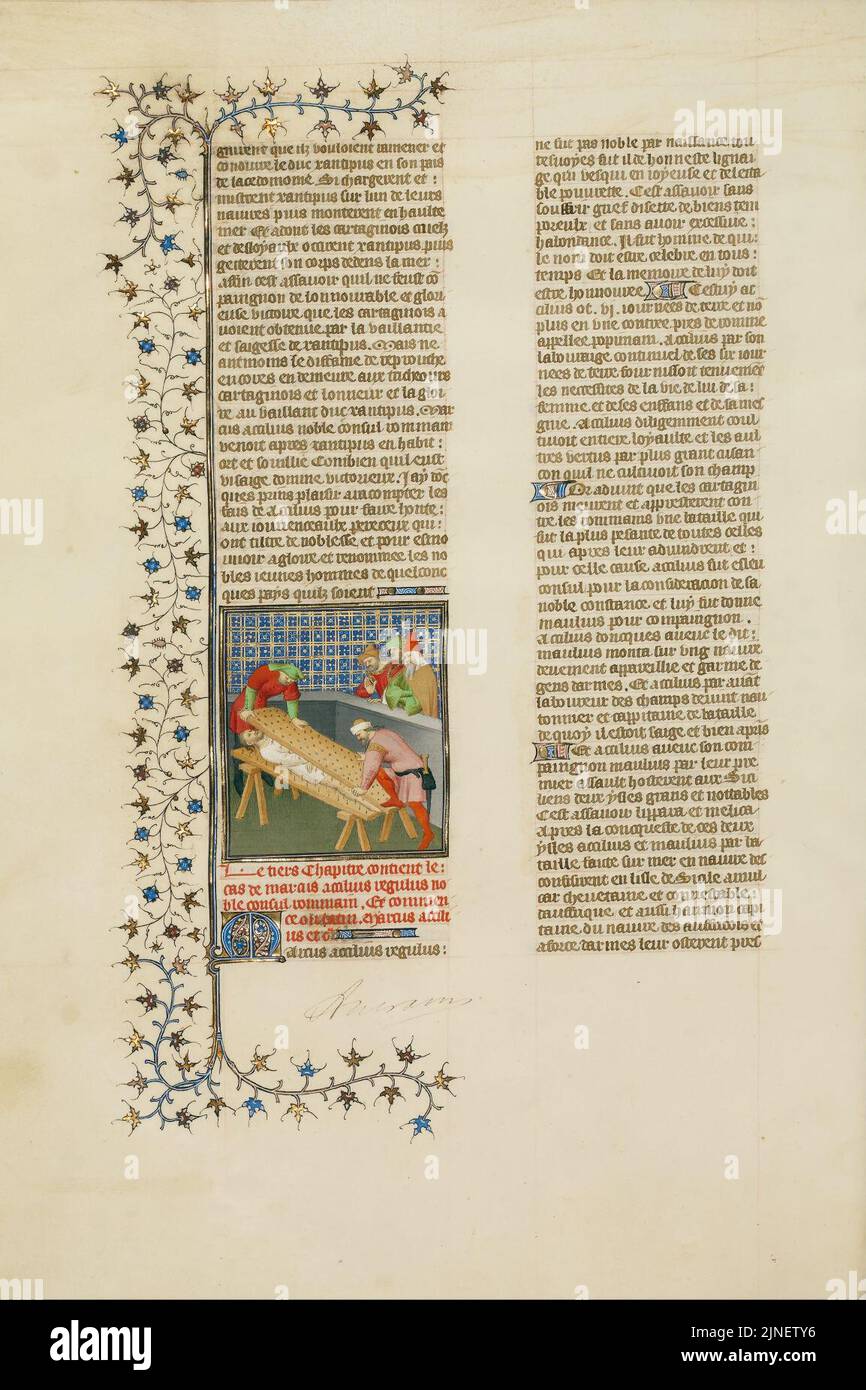 que ilz vouloient ramener et
conduire le duc xantipus en son pais
de lacedomone. Si chargerent et:
mistrent xantipus sur lun de leurs
navires puis monterent en haulte
mer Et adont les cartaginois cruelz
et desloyaulx occirent xantipus puis
getterent son corps dedens la mer:
affin cest assavoir quil ne feust co
paignon de lonnourable et glori
euse victoire que les cartaginois a
voient obtenue par la vaillantie
et saigesse de xantipus. Mais ne
antmoins le diffame de reprouche
encores en demeure aux tricheurs
cartaginois et lonneur et la gloi
re au vaillant duc xantipus. Mar
cus acilius noble consul rommain
venoit apres xantipus en habit:
ort et souillie Combien quil eust
visaige domme victorieux. Jay doc
ques prins plaisir a racompter les
fais de acilius pour faire honte:
aux iouvenceaulx pereceux qui:
ont tiltre de noblesse et pour esmo
uvoir a gloire et renommee les no
bles ieunes hommes de quelconc
ques pays quilz soient
Le tiers Chapitre contient le:
cas de marcus acilius regulus no
ble consul rommain. Et commen
ce ou latin. Marcus acili
us et c
Marcus acilius regulus:
ne fut pas noble par naissance tou
tesvoyes fut il de honneste lignai
ge qui vesqui en ioyeuse et delecta
ble pouvrete. Cest assavoir sans
souffrir grief disette de biens tem
poreulx et sans avoir excessive:
habondance. Il fut homme de qui:
le nom doit estre celebre en tous:
temps Et la memoire de luy doit
estre honnouree Cestuy ac
cilius ot .vi. iournees de terre et no
plus en une contree pres de romme
appellee popinani. Acilius par son
labouraige continuel de ses six iour
nees de terre fournissoit tenuement
les necessites de la vie de lui de sa:
femme et de ses enffans et de sa mes
gnie. Acilius diligemment coul
tivoit entiere loyaulte et les aul
tres vertus par plus grant cusan
con quil ne cultivoit son champ
Or advint que les cartagin
ois meurent et appresterent con
tre les rommains une bataille qui
fut la plus pesante de toutes celles
qui apres leur advindrent et:
pour celle cause acilius fut esleu
consul pour la consideracion de sa
noble constance et luy fut donne
maulius pour compaignon.
Acilius doncques avecc le dit:
maulius monta sur ung navire
deuement appareillie et garnie de
gens darmes. Et acilius par avat
laboureur des champs devint nau
tonnier et cappitaine de bataille
de quoy il estoit saige et bien apris
Et acilius avecc son com
paingnon maulius par leur pre
mier assault hosterent aux Sici
liens deux ysles grans et nottables
Cest assavoir lippara et melica
Apres la conqueste de ces deux
ysles acilius et maulius par ba
taille faicte sur mer en navire des
confirent en lille de Sicile amul
car chevetaine et connestable:
dauffrique et aussi hannon capi
taine du navire des aufricois et
a force darmes leur osterent pres
alamy
Image ID: 2JNETY6
www.alamy.com